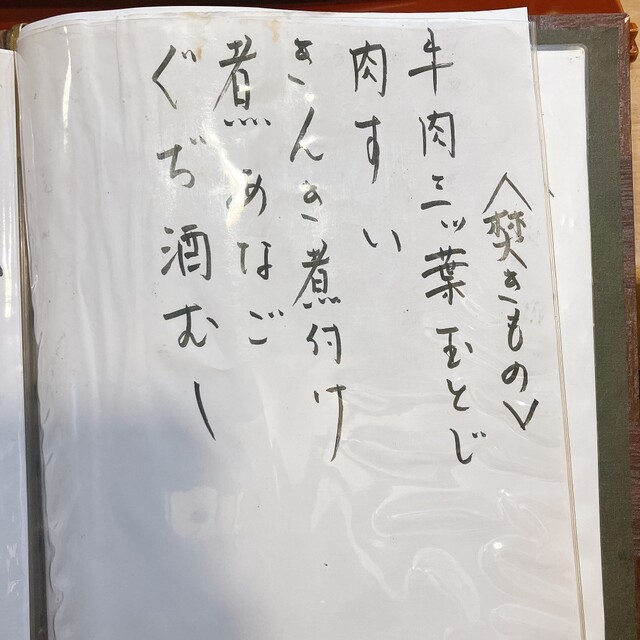 〈焚きもの〉
牛肉三ッ葉玉とじ
肉すい
きんき煮付け
煮あなご
ぐぢ酒むし